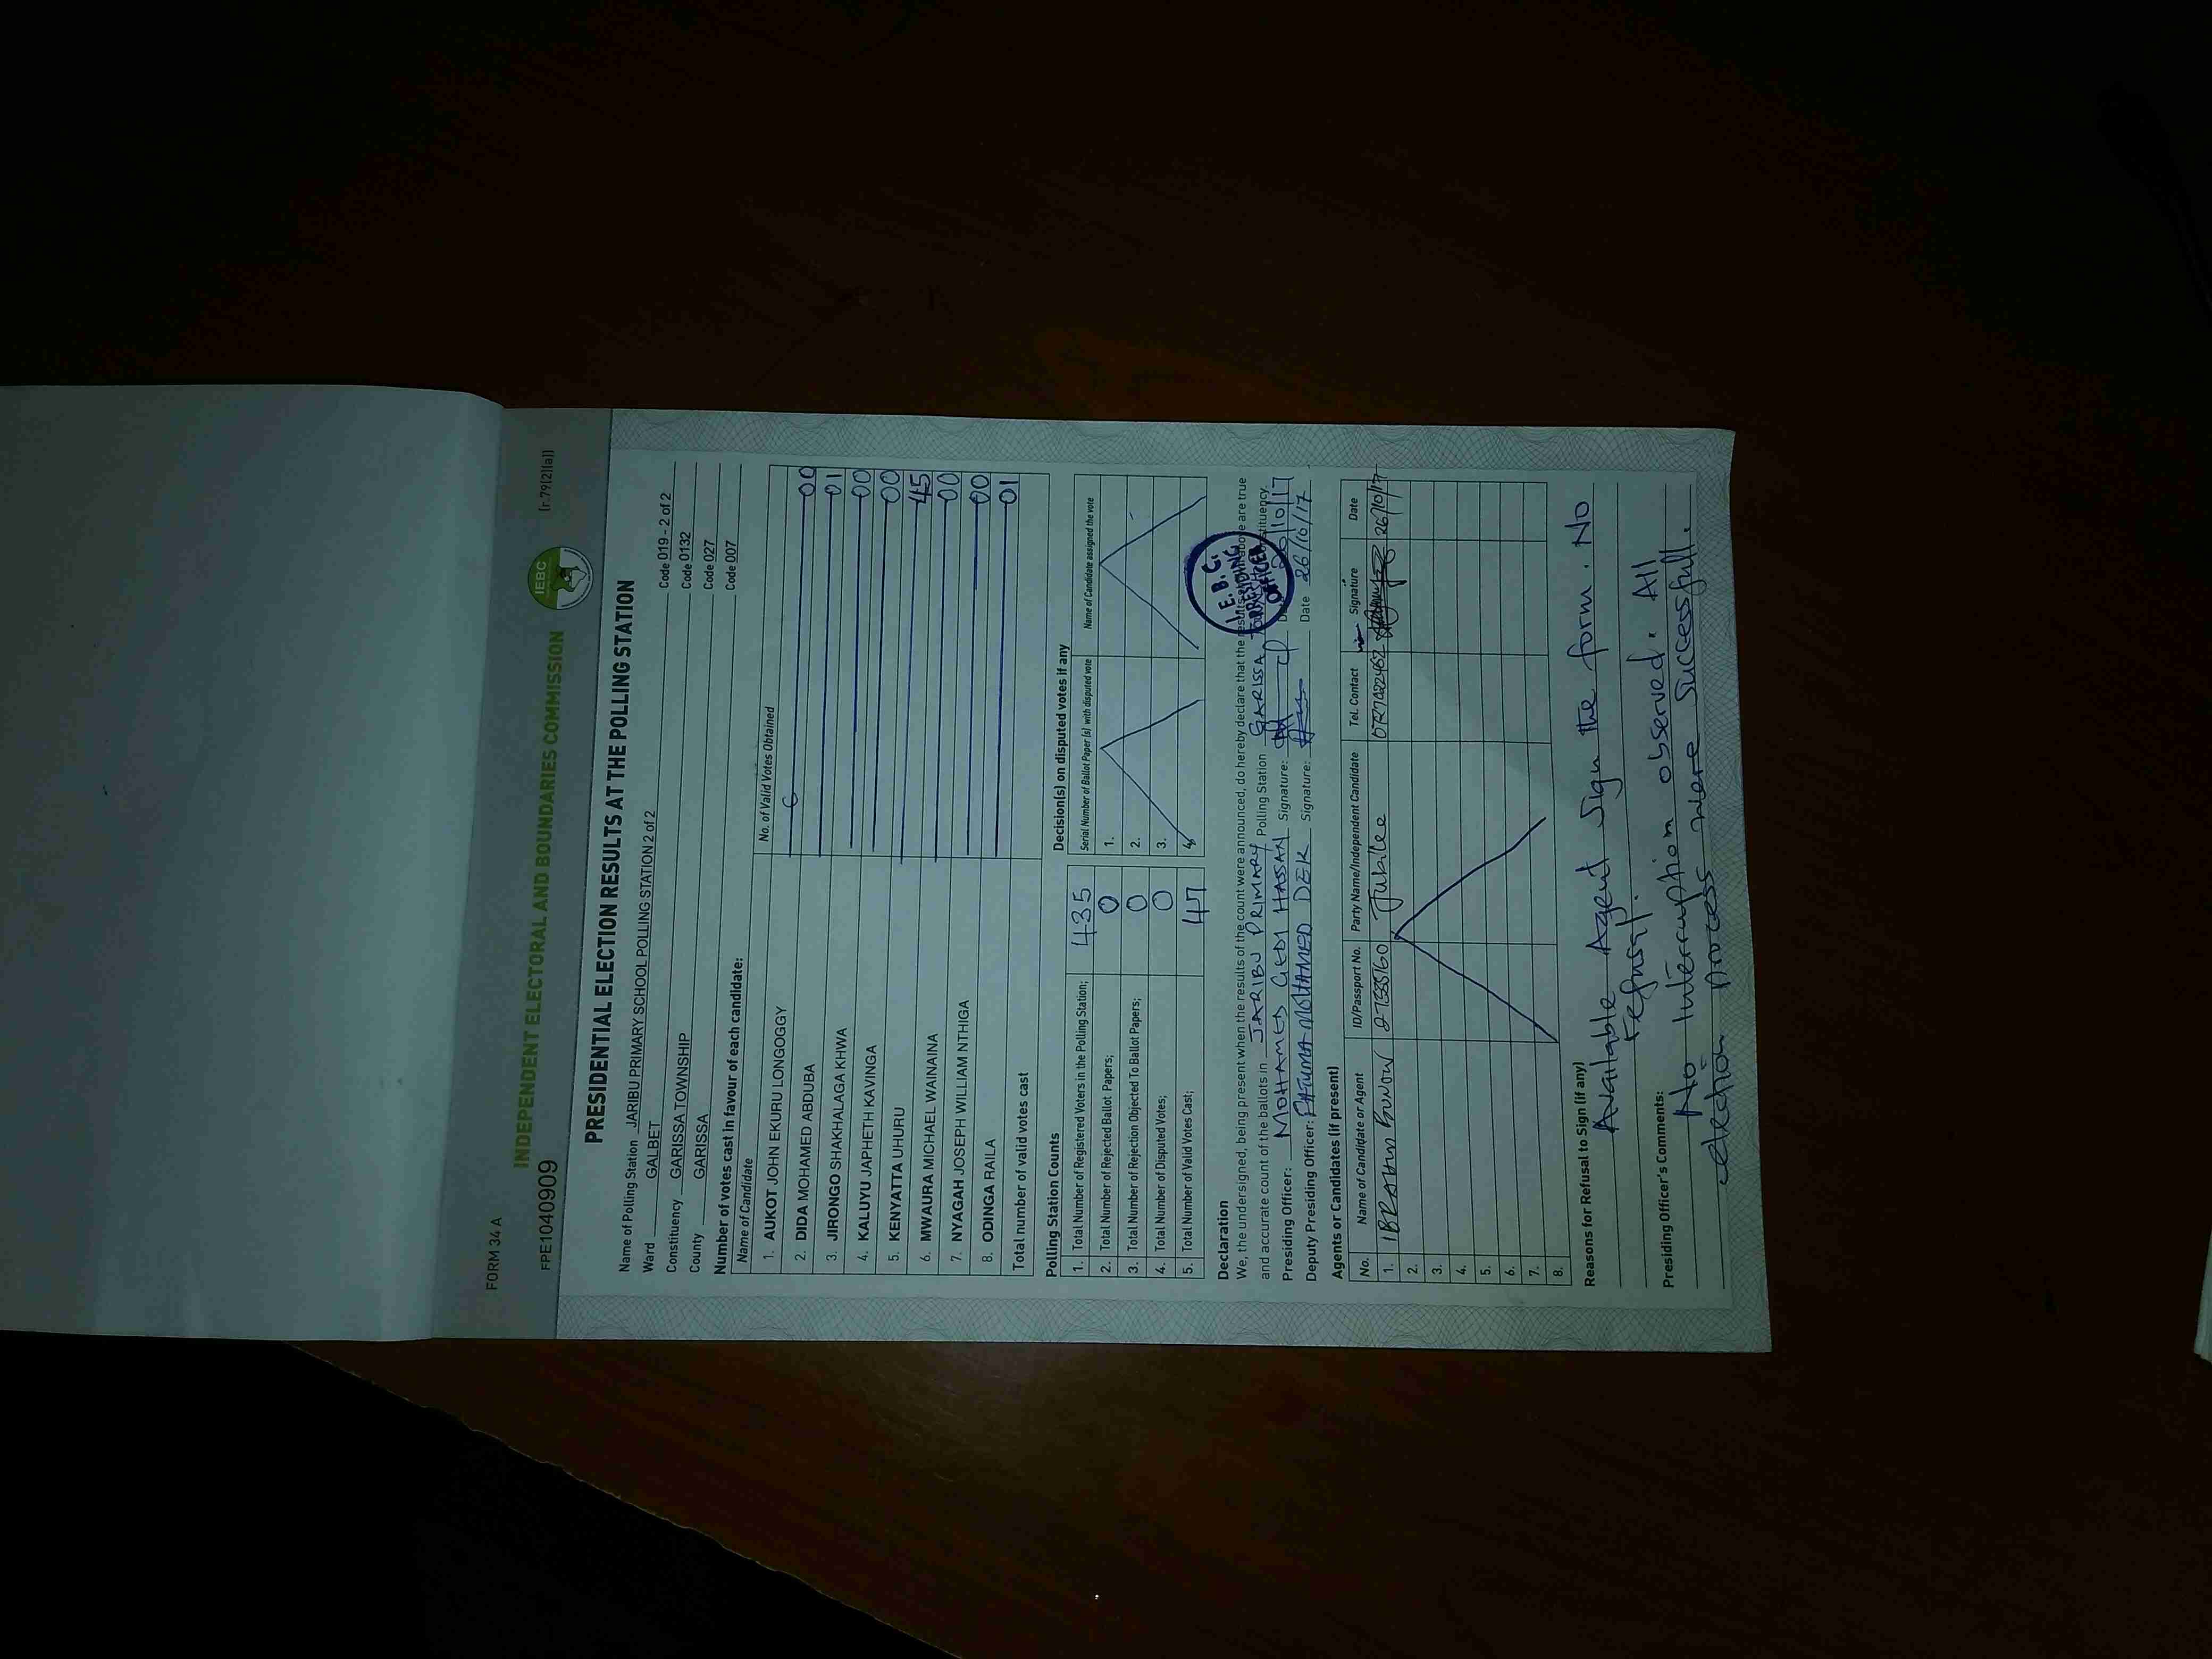 FORM 34 A
INDEPENDENT ELECTORAL AND BOUNDARIES COMMISSION
IEBC
(r.79(2)(a))
FPE1040909
PRESIDENTIAL ELECTION RESULTS AT THE POLLING STATION
Name of Polling Station JARIBU PRIMARY SCHOOL POLLING STATION 2 of 2 Code 019 - 2 of 2
Ward GALBET Code 0132
Constituency GARISSA TOWNSHIP Code 027
County GARISSA Code 007
Number of votes cast in favour of each candidate:
Name of Candidate No. of Valid Votes Obtained
1. AUKOT JOHN EKURU LONGOGGY 00
2. DIDA MOHAMED ABDUBA 01
3. JIRONGO SHAKHALAGA KHWA 00
4. KALUYU JAPHETH KAVINGA 00
5. KENYATTA UHURU 45
6. MWAURA MICHAEL WAINAINA 00
7. NYAGAH JOSEPH WILLIAM NTHIGA 00
8. ODINGA RAILA 01
Total number of valid votes cast
Polling Station Counts
1. Total Number of Registered Voters in the Polling Station; 435
2. Total Number of Rejected Ballot Papers; 0
3. Total Number of Rejection Objected To Ballot Papers; 0
4. Total Number of Disputed Votes; 0
5. Total Number of Valid Votes Cast; 47
Decision(s) on disputed votes if any
Serial Number of Ballot Paper (s) with disputed vote Name of Candidate assigned the vote
1.
2.
3.
4.
Declaration
We, the undersigned, being present when the results of the count were announced, do hereby declare that the results shown above are true
and accurate count of the ballots in JARIBU PRIMARY Polling Station GARISSA Constituency.
Presiding Officer: MOHAMED GEDI HASSAN Signature: Date 26/10/17
Deputy Presiding Officer: FATUMA MOHAMED DEK Signature: Date 26/10/17
I.E.B.C. PRESIDING OFFICER
Agents or Candidates (if present)
No. Name of Candidate or Agent ID/Passport No. Party Name/Independent Candidate Tel. Contact Signature Date
1. IBRAHIM Jubilee 26/10/17
2.
3.
4.
5.
6.
7.
8.
Reasons for Refusal to Sign (if any)
Available Agent Sign the form. No
refusal.
Presiding Officer's Comments:
No Interruption observed. All
election process were Successfull.